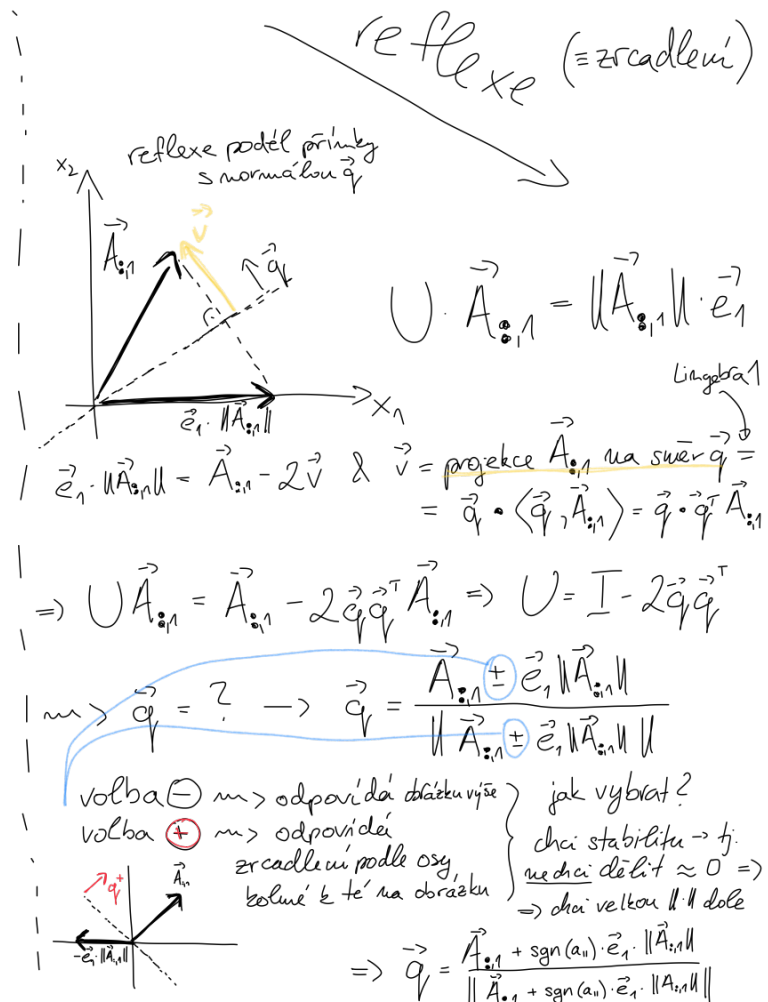 reflexe (≡ zrcadlení)
reflexe podél přímky
s normálou q⃗
x₂
A⃗:,1
v⃗
q⃗
e⃗₁·‖A⃗:,1‖
x₁
U · A⃗:,1 = ‖A⃗:,1‖ · e⃗₁
Lingebra1
e⃗₁·‖A⃗:,1‖ = A⃗:,1 - 2v⃗ & v⃗ = projekce A⃗:,1 na směr q⃗ =
= q⃗ · ⟨q⃗, A⃗:,1⟩ = q⃗ · q⃗ᵀ A⃗:,1
=> U A⃗:,1 = A⃗:,1 - 2 q⃗ q⃗ᵀ A⃗:,1 => U = I - 2 q⃗ q⃗ᵀ
~> q⃗ = ? -> q⃗ = (A⃗:,1 ± e⃗₁‖A⃗:,1‖) / ‖A⃗:,1 ± e⃗₁‖A⃗:,1‖‖
volba ⊖ ~> odpovídá obrázku výše
volba ⊕ ~> odpovídá
zrcadlení podle osy
kolmé k té na obrázku
jak vybrat?
chci stabilitu -> tj.
nechci dělit ≈ 0 =>
=> chci velkou ‖·‖ dole
q⃗⁺
A⃗:,1
-e⃗₁·‖A⃗:,1‖
=> q⃗ = (A⃗:,1 + sgn(a₁₁)·e⃗₁·‖A⃗:,1‖) / ‖A⃗:,1 + sgn(a₁₁)·e⃗₁·‖A:,1‖‖